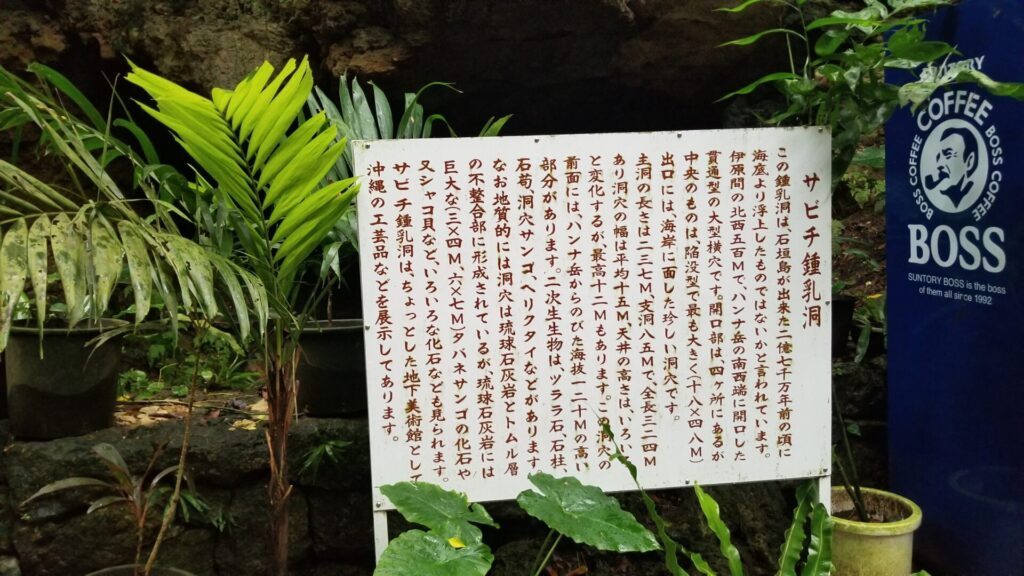 サビチ鍾乳洞
この鍾乳洞は、石垣島が出来た二億七千万年前の頃に
海底より浮上したものではないかと言われています。
伊原間の北西五百Mで、ハンナ岳の南西端に開口した
貫通型の大型横穴です。開口部は、四ヶ所にあるが
中央のものは陥没型で最も大きく(十八×四八M)
出口には、海岸に面した珍しい洞穴です。
主洞の長さは二三七M、支洞八八五Mで、全長三二四M
あり洞穴の幅は平均十五M、天井の高さは、いろいろ
と変化するが、最高十二Mもあります。この洞穴の
前面には、ハンナ岳からのびた海抜一二十Mの高い
部分があります。二次生生物は、ツララ石、石柱、
石荀、洞穴サンゴ、ヘリクタイなどがあります
なお地質的には洞穴は琉球石灰岩とトムル層
の不整合部に形成されているが、琉球石灰岩には
巨大な(三×四M、六×七M)タバネサンゴの化石や
又シャコ貝など、いろいろな化石なども見られます。
サビチ鍾乳洞は、ちょっとした地下美術館として
沖縄の工芸品などを展示してあります。
SUNTORY
COFFEE
BOSS COFFEE
BOSS COFFEE
BOSS
SUNTORY BOSS is the boss
of them all since 1992